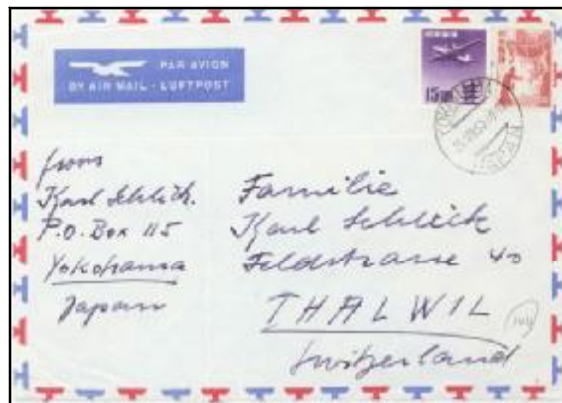 PAR AVION
BY AIR MAIL - LUFTPOST
15
from
Karl Schlick.
P.O. Box 115
Yokohama
Japan
Familie
Karl Schlick
Feldstrasse 40
THALWIL
Switzerland
JAPAN